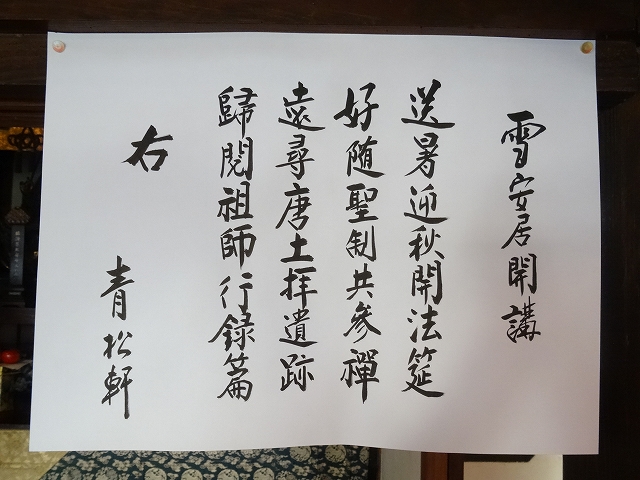 雪安居開講
送暑迎秋開法筵
好随聖制共参禪
遠尋唐土拝遺跡
歸閲祖師行録篇
右
青松軒